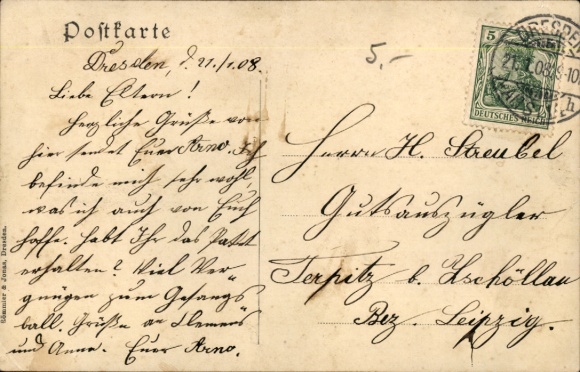 Postkarte
Dresden, d. 21./1.08.
Liebe Eltern!
Herzliche Grüße von
hier sendet Euer Arno. Ich
befinde mich sehr wohl,
was ich auch von Euch
hoffe. Habt Ihr das Paket
erhalten? Viel Ver=
gnügen zum Gesangs
ball. Grüße an Klemens
und Anna. Euer Arno.
5,-
5
DEUTSCHES REICH
DRESDEN
21.1.08
Herrn H. Streubel
Gutsauszügler
Terpitz b. Zschöllau
Bez. Leipzig.
Römmler & Jonas, Dresden.